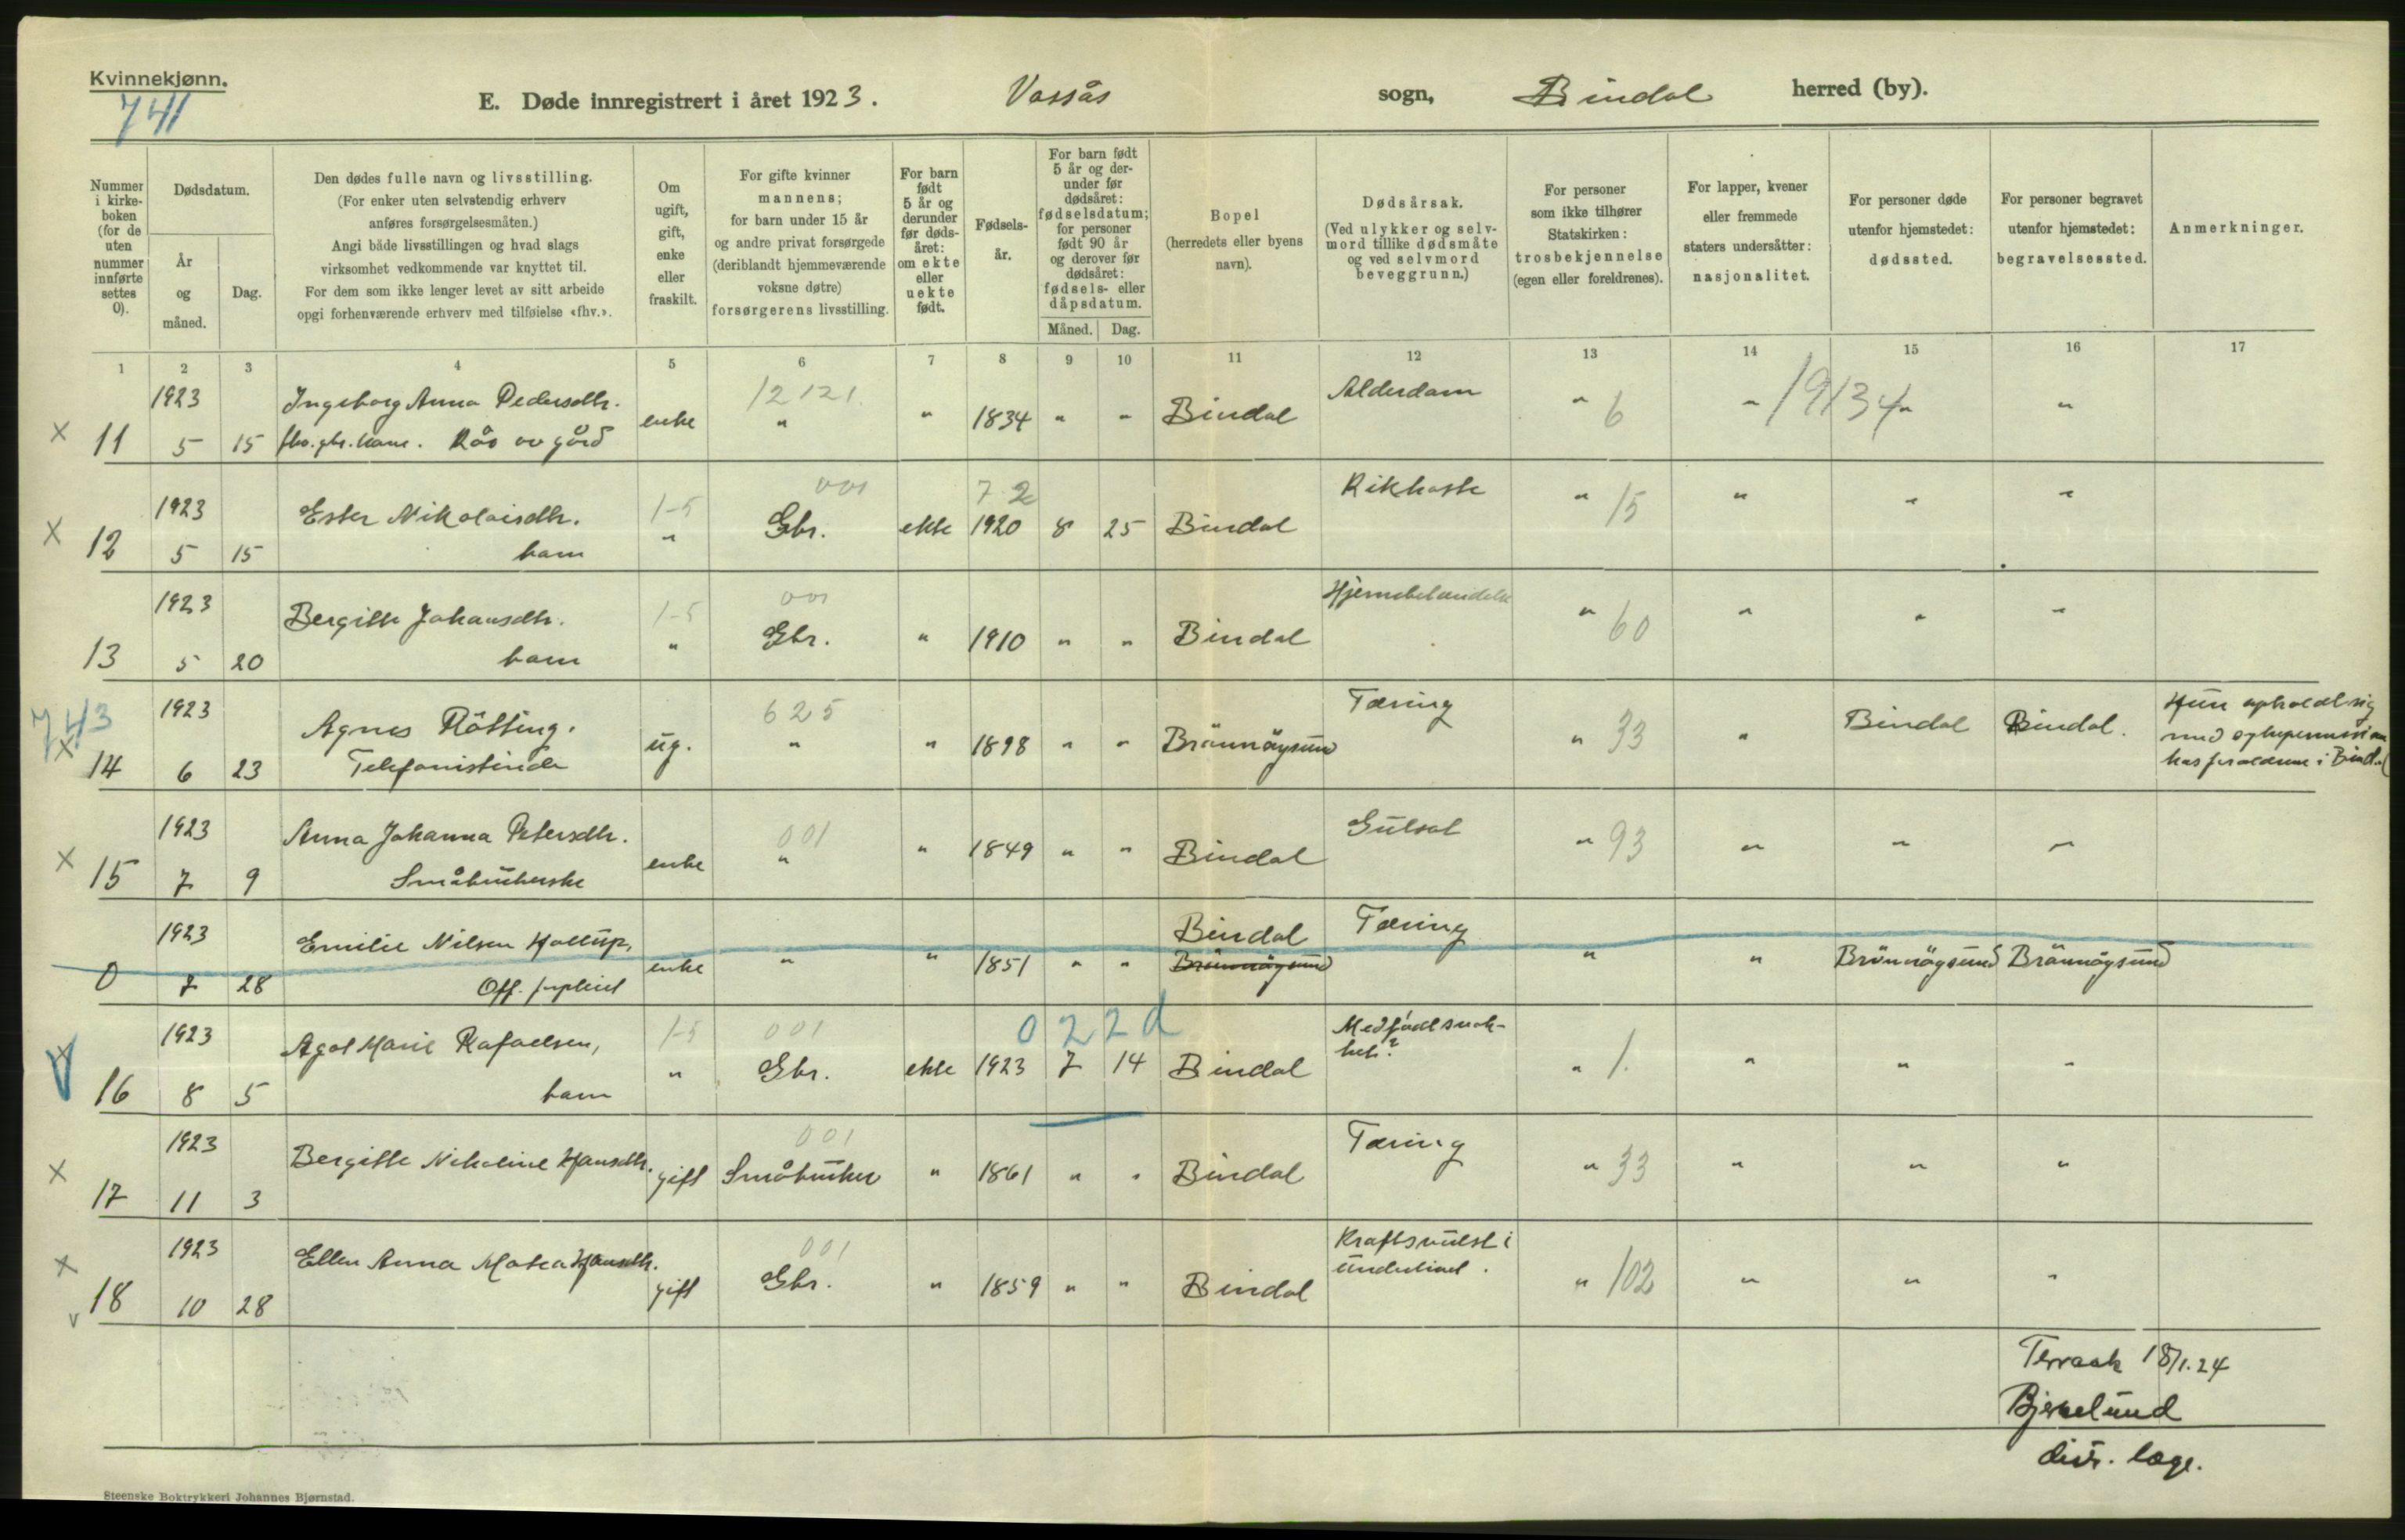 Kvinnekjønn.
741
E. Døde innregistrert i året 1923. Vassås sogn, Bindal herred (by).
Nummer i kirke-boken (for de uten nummer innførte settes 0).
Dødsdatum.
År og måned.
Dag.
Den dødes fulle navn og livsstilling.
(For enker uten selvstendig erhverv
anføres forsørgelsesmåten.)
Angi både livsstillingen og hvad slags
virksomhet vedkommende var knyttet til.
For dem som ikke lenger levet av sitt arbeide
opgi forhenværende erhverv med tilføielse «fhv.».
Om ugift, gift, enke eller fraskilt.
For gifte kvinner
mannens;
for barn under 15 år
og andre privat forsørgede
(deriblandt hjemmeværende
voksne døtre)
forsørgerens livsstilling.
For barn født 5 år og derunder før døds-året: om ekte eller uekte født.
Fødsels-år.
For barn født 5 år og der-under før dødsåret: fødselsdatum; for personer født 90 år og derover før dødsåret: fødsels- eller dåpsdatum.
Måned. Dag.
Bopel
(herredets eller byens
navn).
Dødsårsak.
(Ved ulykker og selv-
mord tillike dødsmåte
og ved selvmord
beveggrunn.)
For personer
som ikke tilhører
Statskirken:
trosbekjennelse
(egen eller foreldrenes).
For lapper, kvener
eller fremmede
staters undersåtter:
nasjonalitet.
For personer døde
utenfor hjemstedet:
dødssted.
For personer begravet
utenfor hjemstedet:
begravelsessted.
Anmerkninger.
1 2 3 4 5 6 7 8 9 10 11 12 13 14 15 16 17
1923 Ingeborg Anna Pedersdtr. 12121. Alderdom 19134
x 11 5 15 enke " " 1834 " " Bindal " 6 " " "
1923 Ester Nikolaisdtr. 1-5 001 72 Kikhoste
x 12 5 15 barn " Gbr. ekte 1920 8 25 Bindal " 15 " " "
1923 Bergitte Johansdtr. 1-5 001
13 5 20 barn " Gbr. " 1910 " " Bindal " 60 " " "
743
1923 Agnes Røtting. 625 Tæring Hun opholdt sig
x 14 6 23 Telefonistinde ug. " " 1898 " " Brønnøysund " 33 " Bindal Bindal.
1923 Anna Johanna Petersdtr. 001 Gulsot
x 15 7 9 Småbrukerske enke " " 1849 " " Bindal " 93 " " "
1923 Emilie Nilsen Bindal Tæring
0 7 28 Off. enke " " 1851 " " Brønnøysund " " Brønnøysund Brønnøysund
1923 Agot Marie Rafaelsen, 1-5 001 022d Medfødt svak-
het?
x V 16 8 5 barn " Gbr. ekte 1923 7 14 Bindal " 1. " " "
1923 Bergitte Nikoline Hansdtr. 001 Tæring
x 17 11 3 gift Småbruker " 1861 " " Bindal " 33 " " "
1923 Ellen Anna Matea Hansdtr. 001 Kraftsvulst i
underlivet.
x v 18 10 28 gift Gbr. " 1859 " " Bindal " 102 " " "
Terraak 18/1.24
Bjerkelund
distr. læge.
Steenske Boktrykkeri Johannes Bjørnstad.